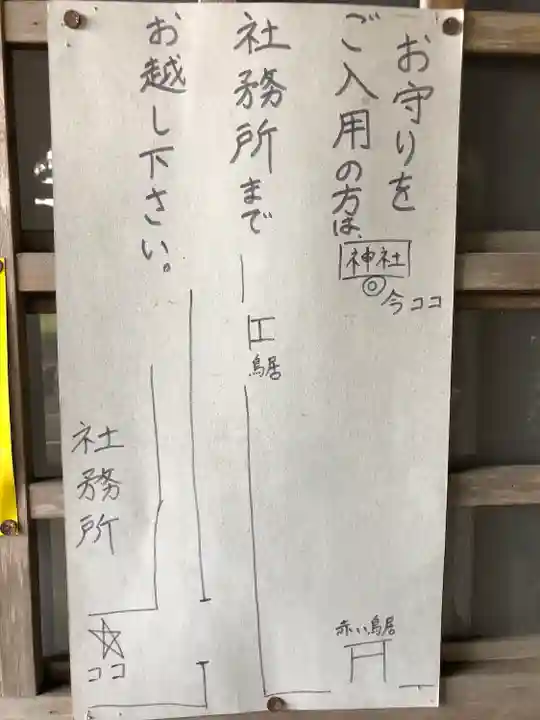 お守りを
ご入用の方は、
社務所まで
お越し下さい。
神社
今ココ
鳥居
社務所
ココ
赤い鳥居